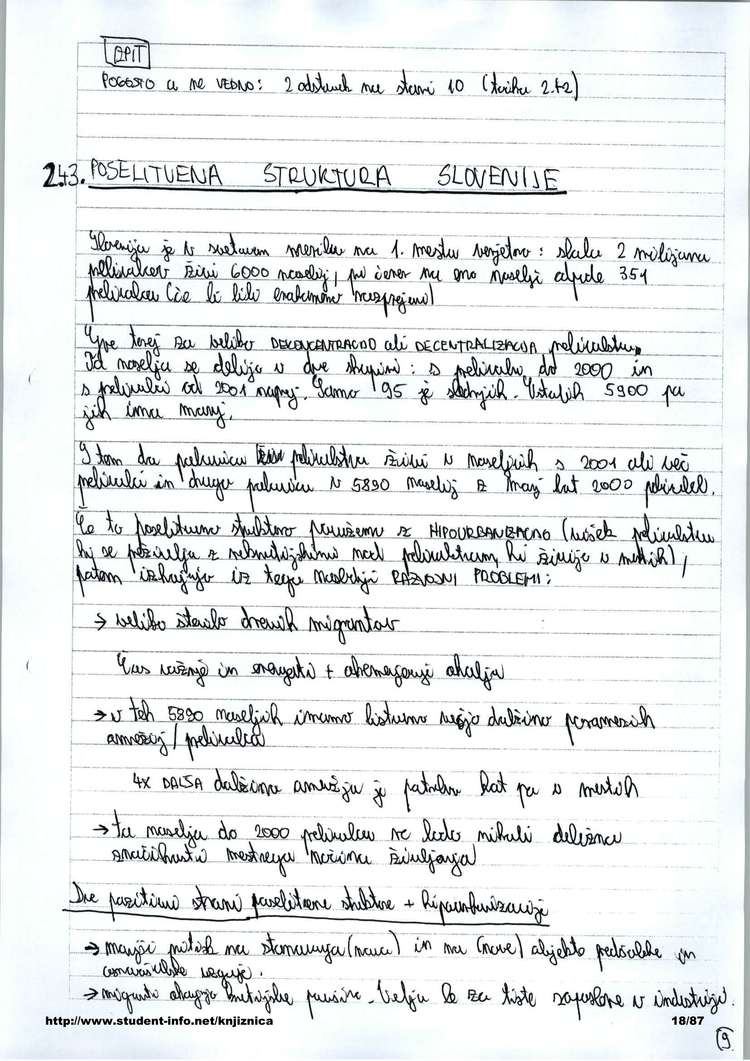 IZPIT
POGOSTO a ne VEDNO: 2 odstavek na strani 10 (točka 2.42)
2.43. POSELITVENA STRUKTURA SLOVENIJE
Slovenija je v svetovnem merilu na 1. mestu verjetno: skoraj 2 milijona
prebivalcev živi 6000 naselij, pri čemer na eno naselje odpade 351
prebivalcev (če bi bili enakomerno razporejeni)
Gre torej za veliko DEKONCENTRACIJO ali DECENTRALIZACIJA prebivalstva.
Ta naselja se delijo v dve skupini: s prebivalci do 2000 in
s prebivalci od 2001 naprej. Samo 95 je slednjih. Ostalih 5900 pa
jih ima manj.
S tem da polovica prebivalstva živi v naseljih s 2001 ali več
prebivalci in druga polovica v 5890 naselij z manj kot 2000 prebival.
Če to poselitveno strukturo povežemo z HIPOURBANIZACIJO (višek prebivalstva
ki se preživlja z nekmetijskimi nad prebivalstvom, ki živijo v mestih),
potem izhajajo iz tega naslednji RAZVOJNI PROBLEMI:
→ veliko število dnevnih migrantov
čas vožnje in energetski + obremenjevanje okolja
→ v teh 5890 naseljih imamo bistveno večjo dolžino posameznih
omrežij / prebivalca
4x DALŠA dolžina omrežja je potrebna kot pa v mestih
→ ta naselja do 2000 prebivalcev ne bodo nikoli deležna
značilnosti mestnega načina življenja
Dve pozitivni strani poselitvene strukture + hipourbanizacije
→ manjši pritisk na stanovanja (nova) in na (nove) objekte predšolske in
osnovnošolske vzgoje.
→ migranti ohranjajo kmetijske površine. Velja le za tiste zaposlene v industriji.
http://www.student-info.net/knjiznica
18/87
9